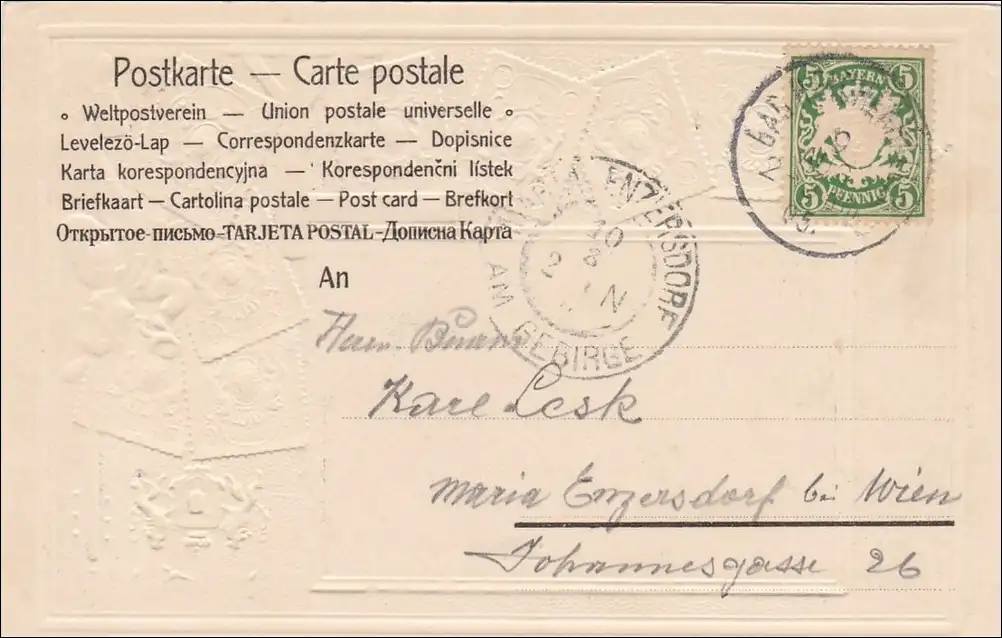 Postkarte — Carte postale
∘ Weltpostverein — Union postale universelle ∘
Levelezö-Lap — Correspondenzkarte — Dopisnice
Karta korespondencyjna — Korespondenčni lístek
Briefkaart — Cartolina postale — Post card — Brefkort
Открытое-письмо–TARJETA POSTAL–Дописна Карта
5 BAYERN 5
5 PFENNIG 5
MARIA ENZERSDORF
AM GEBIRGE
An
Herrn
Karl Lesk
Maria Enzersdorf bei Wien
Johannesgasse 26